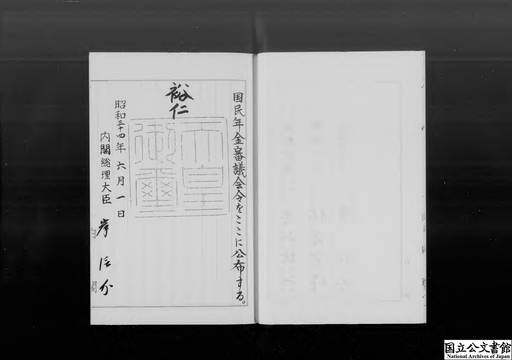 国民年金審議会令をここに公布する。
裕仁
天皇御璽
昭和三十四年六月一日
内閣総理大臣 岸信介
国立公文書館
National Archives of Japan